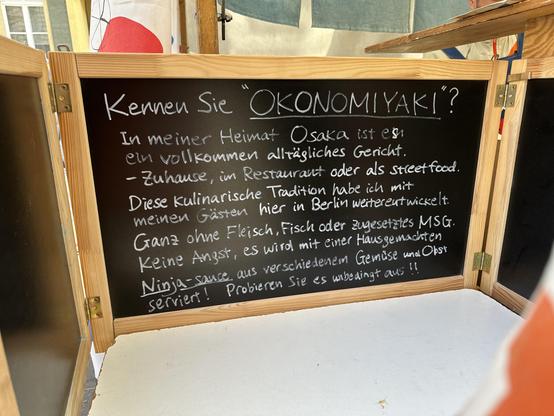 Kennen Sie "OKONOMIYAKI"?
In meiner Heimat Osaka ist es
ein vollkommen alltägliches Gericht.
- Zuhause, im Restaurant oder als streetfood.
Diese Kulinarische Tradition habe ich mit
meinen Gästen hier in Berlin weiterentwickelt.
Ganz ohne Fleisch, Fisch oder zugesetztes MSG.
Keine Angst, es wird mit einer Hausgemachten
Ninja-sauce aus verschiedenem Gemüse und Obst
serviert! Probieren Sie es unbedingt aus!!